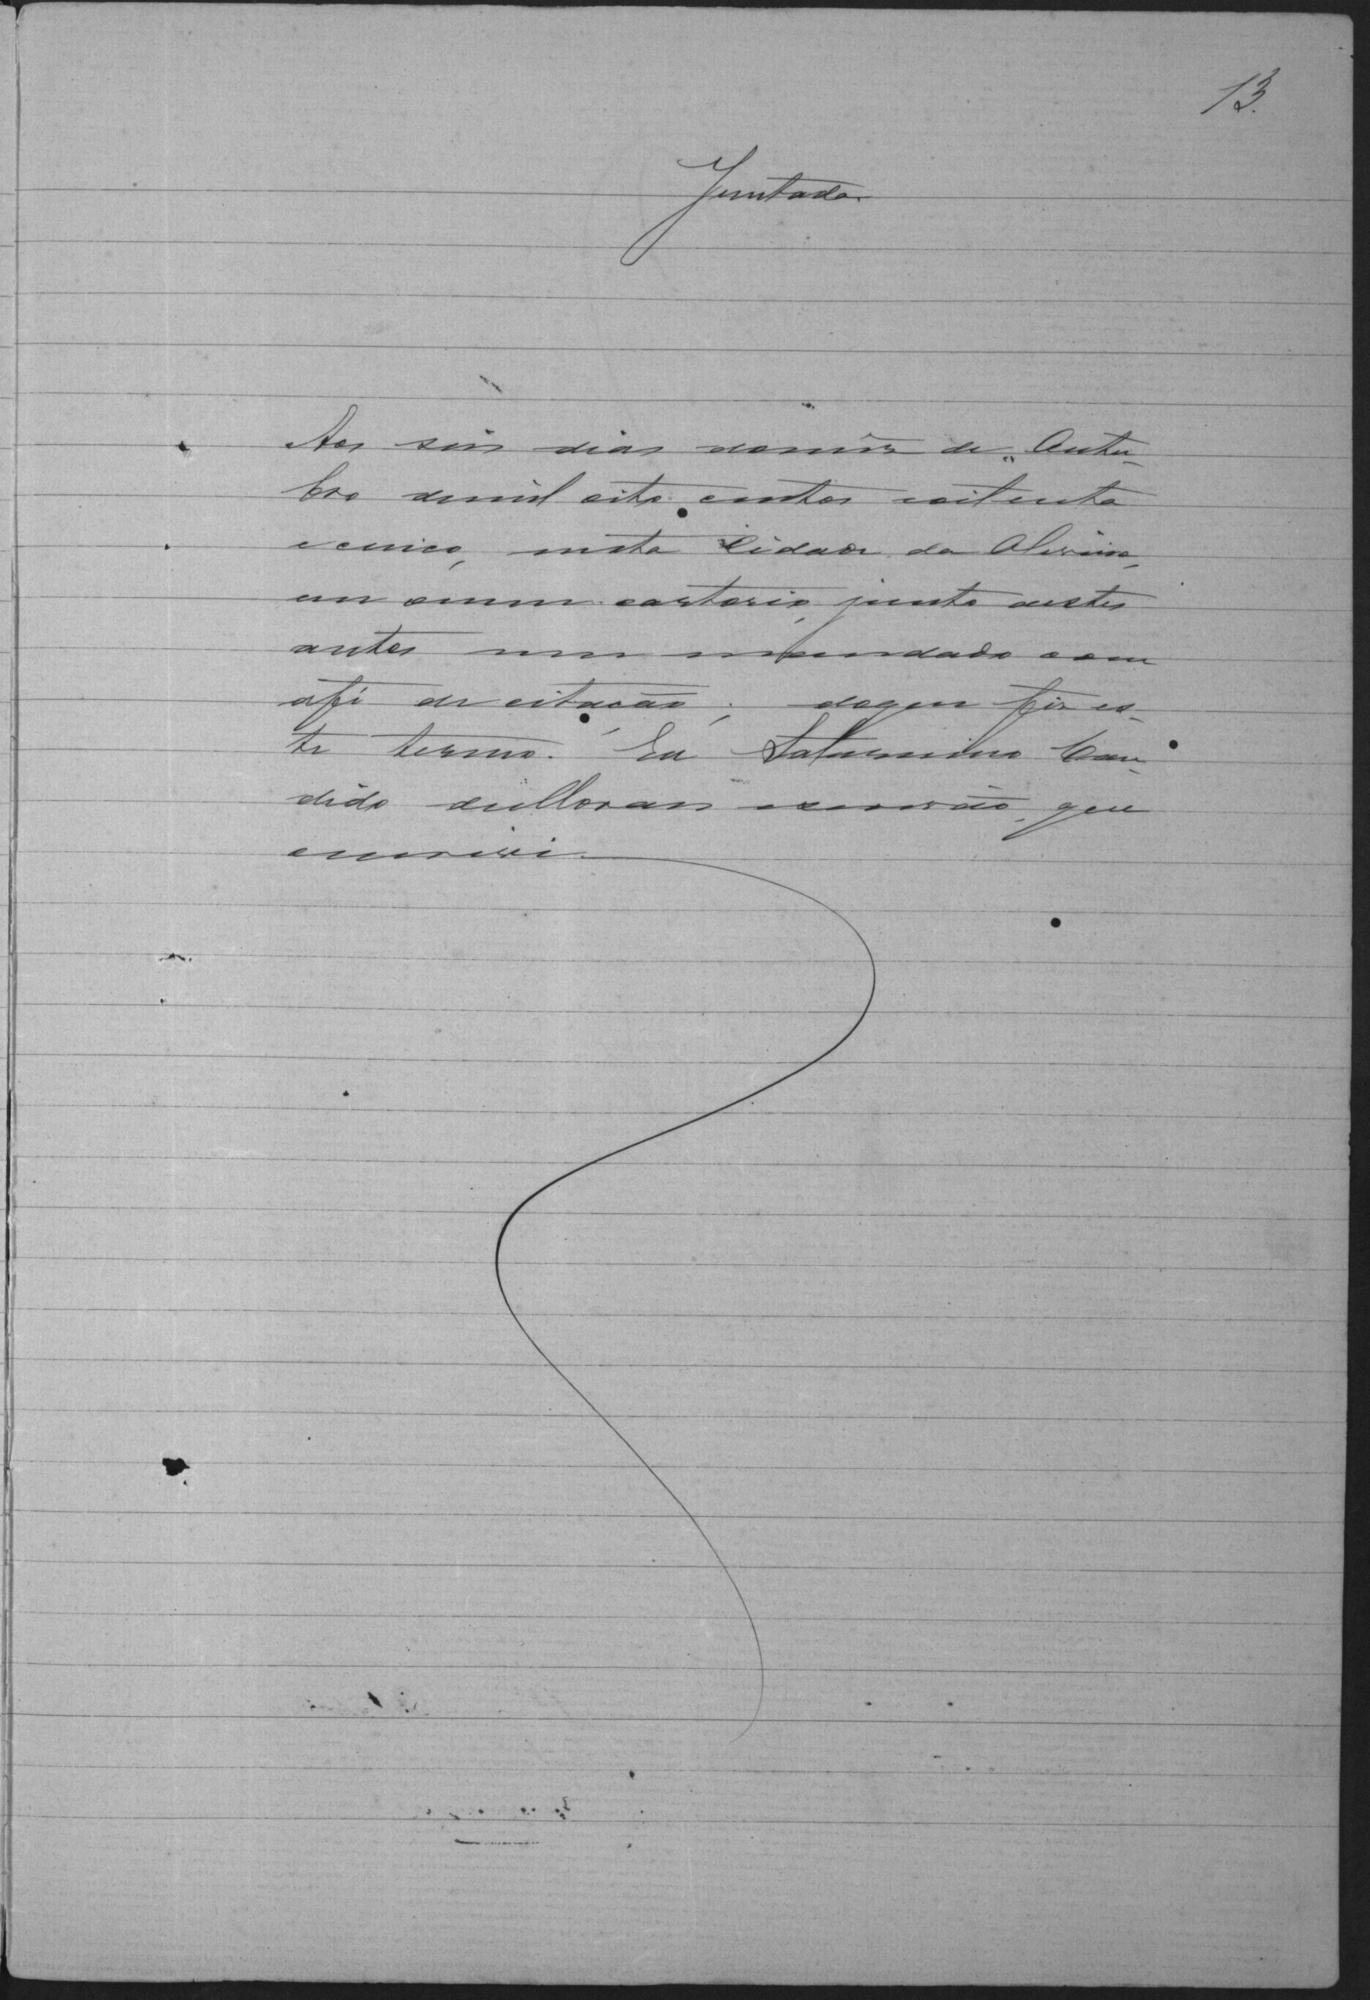 13.
Juntada.
Aos seis dias domês de Outu-
bro demil oito centos eoitenta
ecinco, nesta Cidade da Oliveira,
em omeu cartorio, junto aestes
autos um mandado com
afé de citação; doque fiz es-
te termo. Eu Saturnino Can-
dido deMoraes escrivão, que
escrevi.